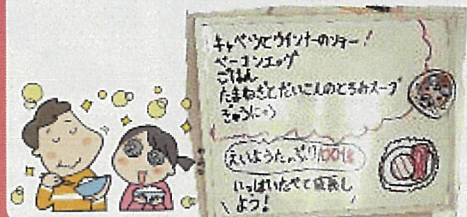 キャベツとウインナーのソテー!
ベーコンエッグ
ごはん
たまねぎとだいこんのとろみスープ
ぎゅうにゅう
えいようたっぷり100%
いっぱいたべて成長し
よう!